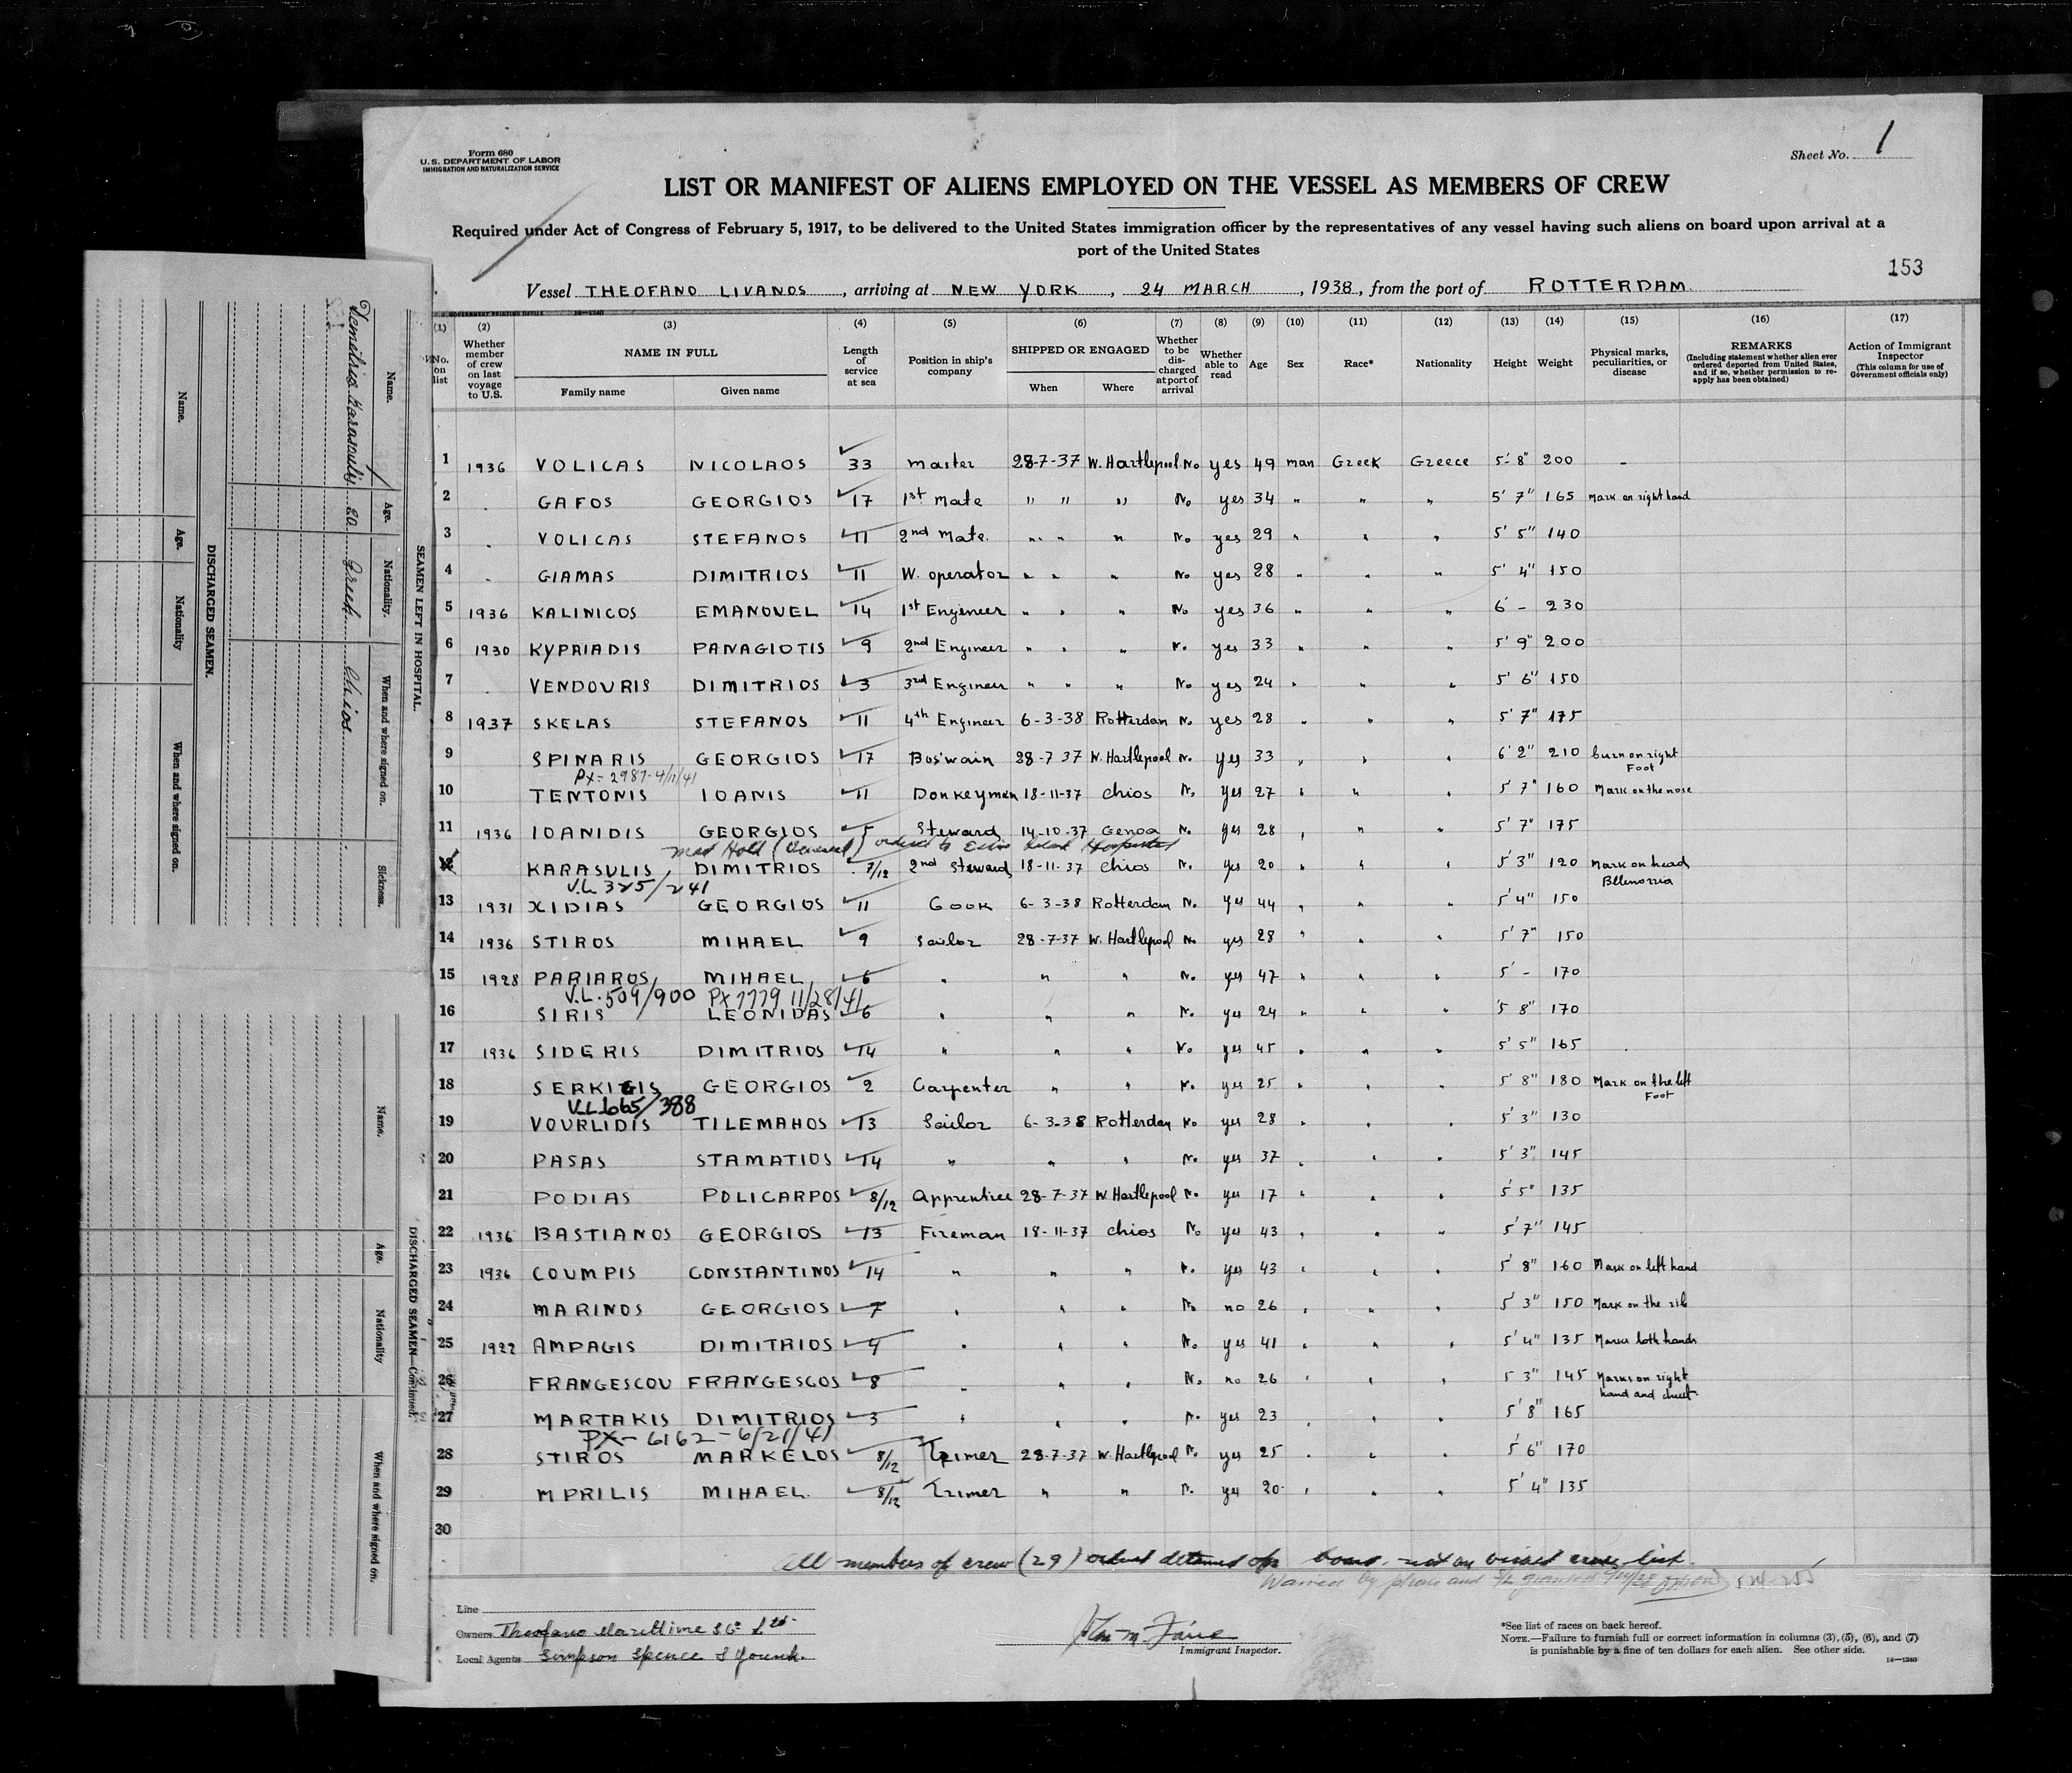 Form 680
U. S. DEPARTMENT OF LABOR
IMMIGRATION AND NATURALIZATION SERVICE
Sheet No. 1
LIST OR MANIFEST OF ALIENS EMPLOYED ON THE VESSEL AS MEMBERS OF CREW
Required under Act of Congress of February 5, 1917, to be delivered to the United States immigration officer by the representatives of any vessel having such aliens on board upon arrival at a
port of the United States
153
Vessel THEOFANO LIVANOS, arriving at NEW YORK, 24 MARCH, 1938, from the port of ROTTERDAM
(1) (2) (3) (4) (5) (6) (7) (8) (9) (10) (11) (12) (13) (14) (15) (16) (17)
No. on list
Whether member of crew on last voyage to U.S.
NAME IN FULL
Family name Given name
Length of service at sea
Position in ship's company
SHIPPED OR ENGAGED
When Where
Whether to be discharged at port of arrival
Whether able to read
Age Sex Race* Nationality Height Weight
Physical marks, peculiarities, or disease
REMARKS
(Including statement whether alien ever ordered deported from United States, and if so, whether permission to reapply has been obtained)
Action of Immigrant Inspector
(This column for use of Government officials only)
1 1936 VOLICAS NICOLAOS 33 Master 28-7-37 W. Hartlepool No yes 49 man Greek Greece 5'-8" 200 -
2 GAFOS GEORGIOS 17 1st Mate " " " No yes 34 " " " 5' 7" 165 Mark on right hand
3 VOLICAS STEFANOS 11 2nd Mate. " " " No yes 29 " " " 5' 5" 140
4 GIAMAS DIMITRIOS 11 W. operator " " " No yes 28 " " " 5' 4" 150
5 1936 KALINICOS EMANOUEL 14 1st Engineer " " " No yes 36 " " " 6' - 230
6 1930 KYPRIADIS PANAGIOTIS 9 2nd Engineer " " " No yes 33 " " " 5' 9" 200
7 VENDOURIS DIMITRIOS 3 3rd Engineer " " " No yes 24 " " " 5' 6" 150
8 1937 SKELAS STEFANOS 11 4th Engineer 6-3-38 Rotterdam No yes 28 " " " 5' 7" 175
9 SPINARIS GEORGIOS 17 Bos'wain 28-7 37 W. Hartlepool No yes 33 " " " 6' 2" 210 burn on right Foot
PX-2987-4/11/41
10 TENTONIS IOANIS 11 Donkeyman 18-11-37 Chios No yes 27 " " " 5' 7" 160 Mark on the nose
11 1936 IOANIDIS GEORGIOS 5 Steward 14-10-37 Genoa No yes 28 " " " 5' 7" 175
Med Hold (Venereal) ordered to Ellis Island Hospital
12 KARASULIS DIMITRIOS 8/12 2nd Steward 18-11-37 Chios No yes 20 " " " 5' 3" 120 Mark on head Bllenorria
V.L. 325/241
13 1931 XIDIAS GEORGIOS 11 Cook 6-3-38 Rotterdam No yes 44 " " " 5' 4" 150
14 1936 STIROS MIHAEL 9 Sailor 28-7-37 W. Hartlepool No yes 28 " " " 5' 7" 150
15 1928 PARIAROS MIHAEL 6 " " " No yes 47 " " " 5' - 170
V.L. 509/900 PX 7779 11/28/41
16 SIRIS LEONIDAS 6 " " " No yes 24 " " " 5 8" 170
17 1936 SIDERIS DIMITRIOS 14 " " " No yes 45 " " " 5' 5" 165
18 SERKIGIS GEORGIOS 2 Carpenter " " No yes 25 " " " 5' 8" 180 Mark on the left Foot
V.L. 665/388
19 VOURLIDIS TILEMAHOS 13 Sailor 6-3-38 Rotterdam No yes 28 " " " 5' 3" 130
20 PASAS STAMATIOS 14 " " " No yes 37 " " " 5' 3" 145
21 PODIAS POLICARPOS 8/12 Apprentice 28-7-37 W. Hartlepool No yes 17 " " " 5' 5" 135
22 1936 BASTIANOS GEORGIOS 13 Fireman 18-11-37 Chios No yes 43 " " " 5' 7" 145
23 1936 COUMPIS CONSTANTINOS 14 " " " No yes 43 " " " 5' 8" 160 Mark on left hand
24 MARINOS GEORGIOS 7 " " " No no 26 " " " 5' 3" 150 Mark on the rib
25 1922 AMPAGIS DIMITRIOS 4 " " " No yes 41 " " " 5' 4" 135 Marks both hands
26 FRANGESCOU FRANGESCOS 8 " " " No no 26 " " " 5 3" 145 Marks on right hand and chest
27 MARTAKIS DIMITRIOS 3 " " " No yes 23 " " " 5' 8" 165
PX-6162-6/21/41
28 STIROS MARKELOS 8/12 Trimer 28-7-37 W. Hartlepool No yes 25 " " " 5' 6" 170
29 MPRILIS MIHAEL 8/12 Trimer " " No yes 20 " " " 5' 4" 135
30
All members of crew (29) ordered detained on board. not on visaed crew list.
Waived by phone and
Line
Owners Theofano Maritime S Co Ltd
Local Agents Simpson Spence & Young.
Immigrant Inspector.
*See list of races on back hereof.
NOTE.—Failure to furnish full or correct information in columns (3), (5), (6), and (7)
is punishable by a fine of ten dollars for each alien. See other side.
14—1240
SEAMEN LEFT IN HOSPITAL.
Name. Age. Nationality. When and where signed on. Sickness.
Demetrios Karasoulis 20 Greek Chios
DISCHARGED SEAMEN.
Name. Age. Nationality When and where signed on.
DISCHARGED SEAMEN—Continued.
Name. Age. Nationality When and where signed on.